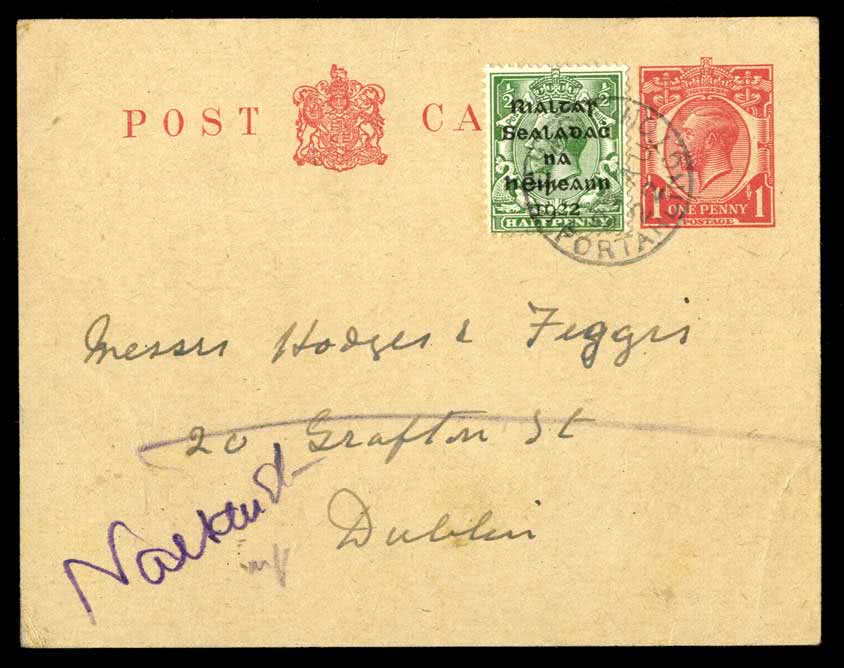 POST CA
½ ½
Rialtas
Sealadac
na
hÉireann
1922
HALFPENNY
1 1
ONE PENNY
POSTAGE
Messrs Hodges & Figgis
20 Grafton St
Dublin